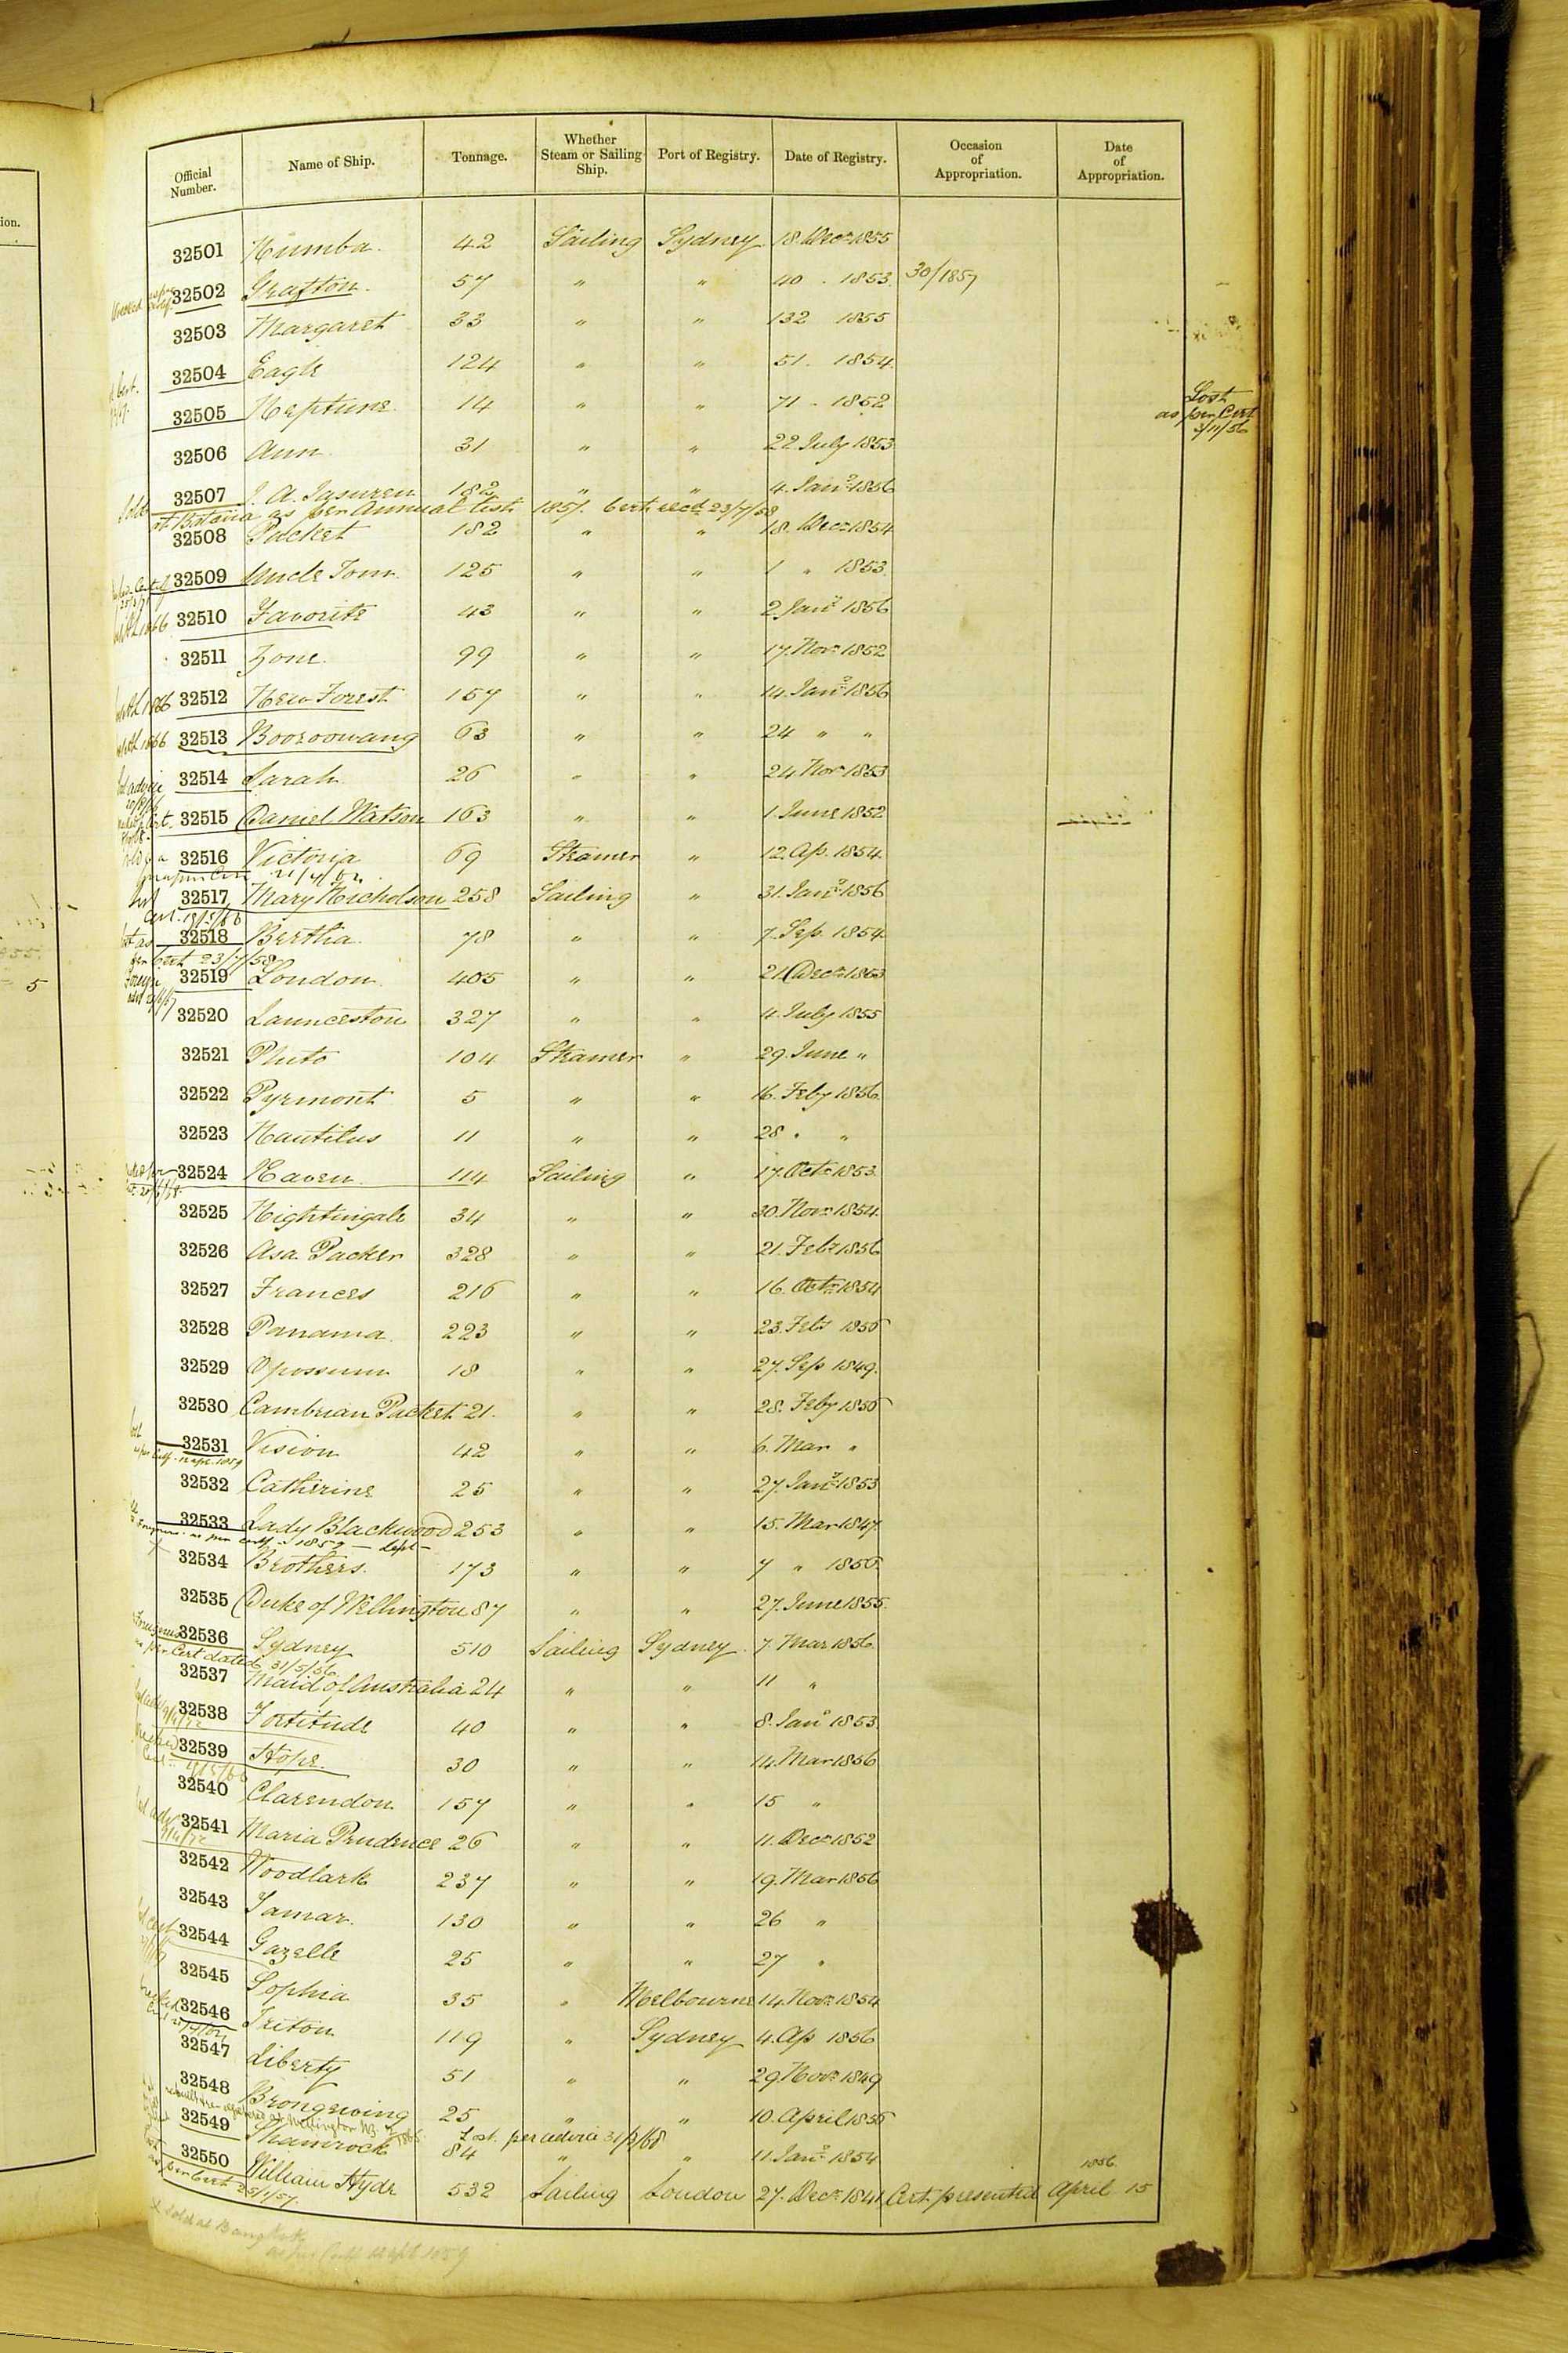 ion.
5
Official Number. Name of Ship. Tonnage. Whether Steam or Sailing Ship. Port of Registry. Date of Registry. Occasion of Appropriation. Date of Appropriation.
32501 Numba 42 Sailing Sydney 18 Decr 1855
32502 Grafton 57 " " 40 . 1853 30/1857
32503 Margaret 33 " " 132 1855
32504 Eagle 124 " " 51 . 1854
32505 Neptune 14 " " 71 . 1852 Lost as per Cert 3/11/56
32506 Ann 31 " " 22 July 1853
32507 J. A. 182 " " 4 Jany 1856
Sold at Batavia as per Annual list 1857. Cert recd 23/7/58
32508 Packet 182 " " 18 Decr 1854
32509 Uncle Tom 125 " " 1 " 1853
32510 Favorite 43 " " 2 Jany 1856
32511 Zone 99 " " 17 Novr 1852
32512 New Forest 157 " " 14 Jany 1856
32513 Booroowang 63 " " 24 " "
32514 Sarah 26 " " 24 Novr 1853
32515 Daniel Watson 163 " " 1 June 1852
32516 Victoria 69 Steamer " 12 Ap. 1854
32517 Mary Nicholson 258 Sailing " 31 Jany 1856
Cert. 18/5/66
32518 Bertha 78 " " 7 Sep. 1854
Lost as per Cert 23/7/58
32519 London 405 " " 21 Decr 1853
32520 Launceston 327 " " 4 July 1855
32521 Pluto 104 Steamer " 29 June "
32522 Pyrmont 5 " " 16 Feby 1856
32523 Nautilus 11 " " 28 " "
32524 Raven 114 Sailing " 17 Octr 1853
32525 Nightingale 34 " " 30 Novr 1854
32526 Asa Packer 328 " " 21 Feby 1856
32527 Frances 216 " " 16 Octr 1854
32528 Panama 223 " " 23 Feby 1856
32529 Opossum 18 " " 27 Sep 1849
32530 Cambrian Packet 21 " " 28 Feby 1856
32531 Vision 42 " " 6 Mar "
32532 Catherine 25 " " 27 Jany 1853
32533 Lady Blackwood 253 " " 15 Mar 1847
32534 Brothers 173 " " 7 " 1856
32535 Duke of Wellington 87 " " 27 June 1855
32536 Sydney 510 Sailing Sydney 7 Mar 1856
as per Cert dated 31/5/56
32537 Maid of Australia 24 " " 11 "
32538 Fortitude 40 " " 8 Jany 1853
32539 Hope 30 " " 14 Mar 1856
32540 Clarendon 157 " " 15 "
32541 Maria Prudence 26 " " 11 Decr 1852
32542 Woodlark 237 " " 19 Mar 1856
32543 Tamar 130 " " 26 "
32544 Gazelle 25 " " 27 "
32545 Sophia 35 " Melbourne 14 Novr 1854
32546 Triton 119 " Sydney 4 Ap 1856
32547 Liberty 51 " " 29 Novr 1849
32548 Brongwing 25 " " 10 April 1856
Lost per advice 31/3/68
32549 Shamrock 84 " " 11 Jany 1854
32550 William Hyde 532 Sailing London 27 Decr 1841 Cert. presented 1856 April 15
as per Cert 25/1/57
x Sold at Bangkok
as per Certf Sept 1859